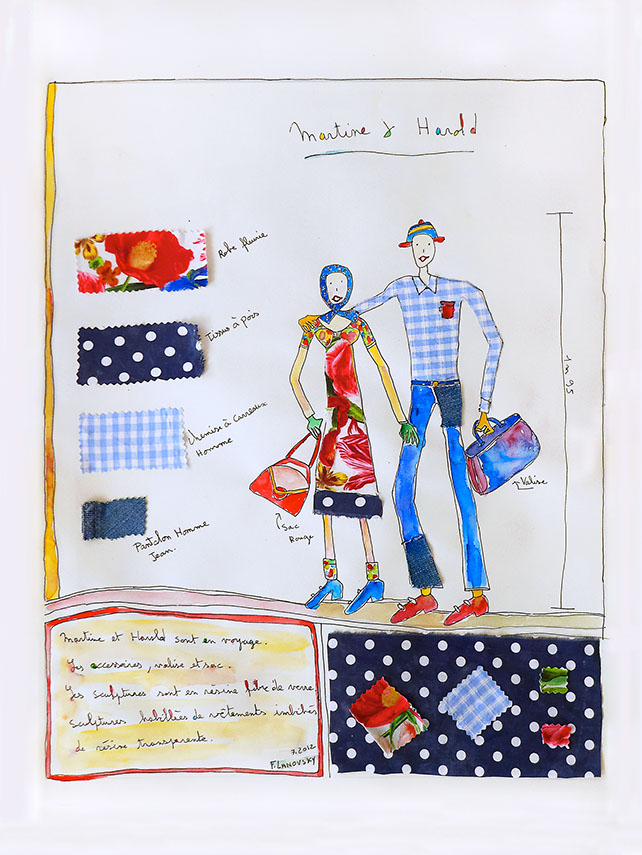 Martine & Harold
Robe fleurie
Tissus à pois
Chemise à Carreaux
Homme
Pantalon Homme
Jean.
1m95
Valise
Sac
Rouge
Martine et Harold sont en voyage.
Les accessoires, valise et sac.
Les sculptures sont en resine fibre de verre,
sculptures habillées de vêtements imbibés
de résine transparente.
7.2012
F. LANOVSKY